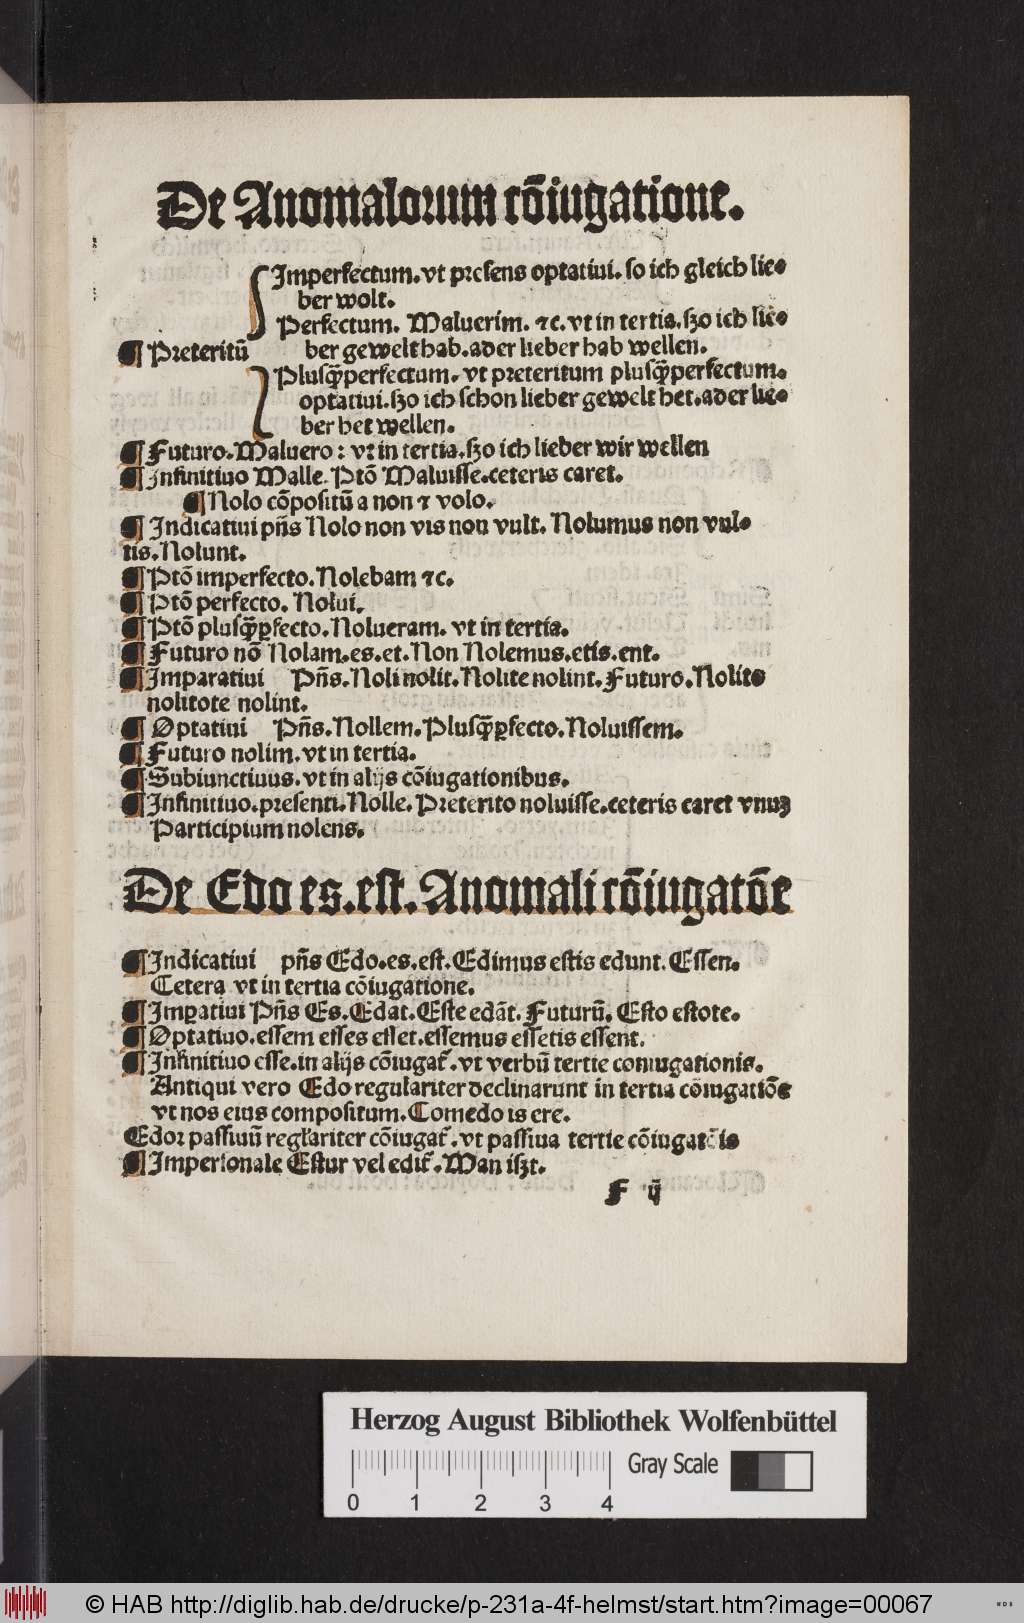 De Anomalorum cōiugatione.
Imperfectum. vt presens optatiui. so ich gleich lie⸗
ber wolt.
Perfectum. Maluerim. ⁊c. vt in tertia. ſzo ich lie⸗
¶ Preteritū ber gewelt hab. ader lieber hab wellen.
Plusq̄perfectum. vt preteritum plusq̄perfectum.
optatiui. ſzo ich schon lieber gewelt het. ader lie⸗
ber het wellen.
¶ Futuro. Maluero: vt in tertia. ſzo ich lieber wir wellen
¶ Infinitiuo Malle. Ptō Maluisse. ceteris caret.
¶ Nolo cōpositū a non ⁊ volo.
¶ Indicatiui pn̄s Nolo non vis non vult. Nolumus non vul⸗
tis. Nolunt.
¶ Ptō imperfecto. Nolebam ⁊c.
¶ Ptō perfecto. Nolui.
¶ Ptō plusq̄ꝑfecto. Nolueram. vt in tertia.
¶ Futuro nō Nolam. es. et. Non Nolemus. etis. ent.
¶ Imparatiui Pn̄s. Noli nolit. Nolite nolint. Futuro. Nolito
nolitote nolint.
¶ Optatiui Pn̄s. Nollem. Plusq̄ꝑfecto. Noluissem.
¶ Futuro nolim. vt in tertia.
¶ Subiunctiuus. vt in alijs cōiugationibus.
¶ Infinitiuo. presenti. Nolle. Preterito noluisse. ceteris caret vnuꝫ
Participium nolens.
De Edo es. est. Anomali cōiugatōe
¶ Indicatiui pn̄s Edo. es. est. Edimus estis edunt. Essen.
Cetera vt in tertia cōiugatione.
¶ Imꝑatiui Pn̄s Es. Edat. Este edāt. Futurū. Esto estote.
¶ Optatiuo. essem esses esset. essemus essetis essent.
¶ Infinitiuo esse. in alijs cōiugat̄. vt verbū tertie coniugationis.
Antiqui vero Edo regulariter declinarunt in tertia cōiugatiōe
vt nos eius compositum. Comedo is ere.
Edor passiuū regl̄ariter cōiugat̄. vt passiua tertie cōiugatōis
¶ Impersonale Estur vel edit̄. Man iſzt.
F ij
Herzog August Bibliothek Wolfenbüttel
Gray Scale
0 1 2 3 4
© HAB http://diglib.hab.de/drucke/p-231a-4f-helmst/start.htm?image=00067